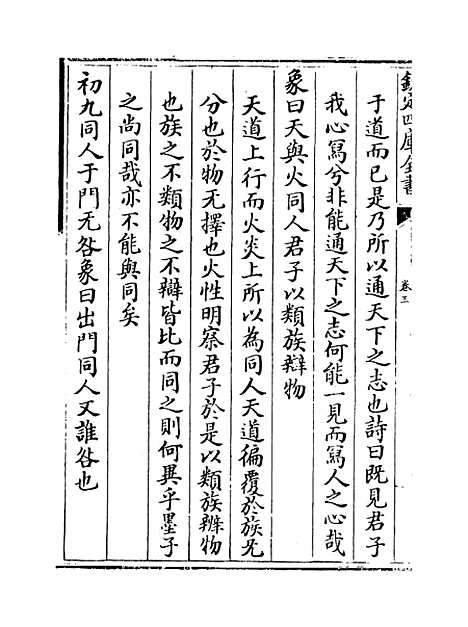 欽定四庫全書
卷三
于道而已是乃所以通天下之志也詩曰既見君子
我心寫兮非能通天下之志何能一見而寫人之心哉
象曰天與火同人君子以類族辯物
天道上行而火炎上所以為同人天道徧覆於族无
分也於物无擇也火性明察君子於是以類族辨物
也族之不類物之不辯皆比而同之則何異乎墨子
之尚同哉亦不能與同矣
初九同人于門无咎象曰出門同人又誰咎也